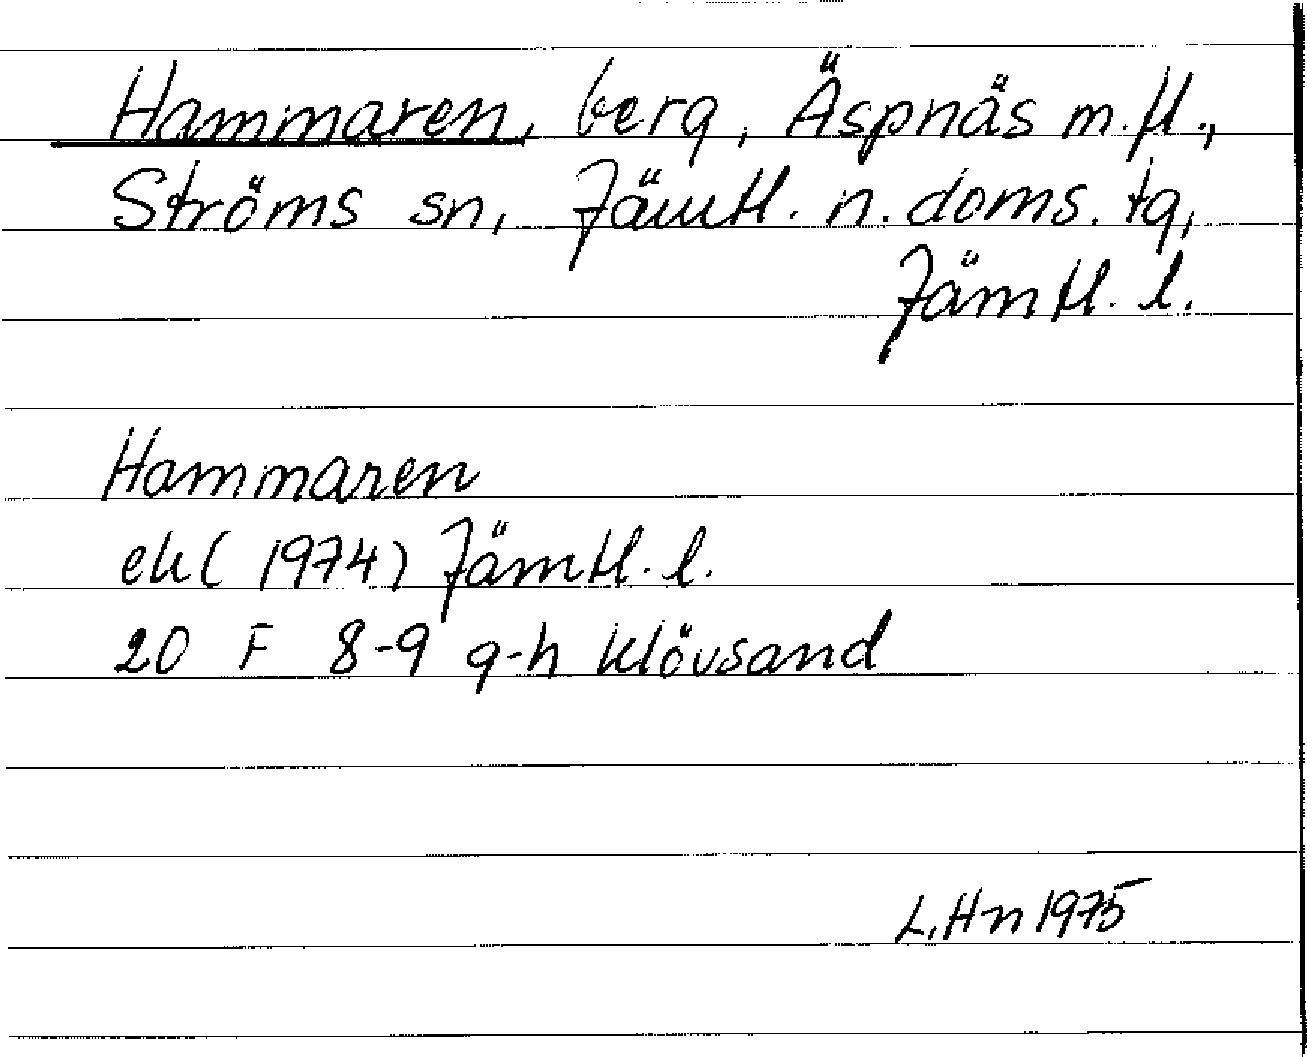 Hammaren, berg, Äspnäs m.fl.,
Ströms sn, Jämtl. n. doms. tg,
Jämtl. l.
Hammaren
ek (1974) Jämtl. l.
20 F 8-9 g-h Klövsand
L. Hn 1975